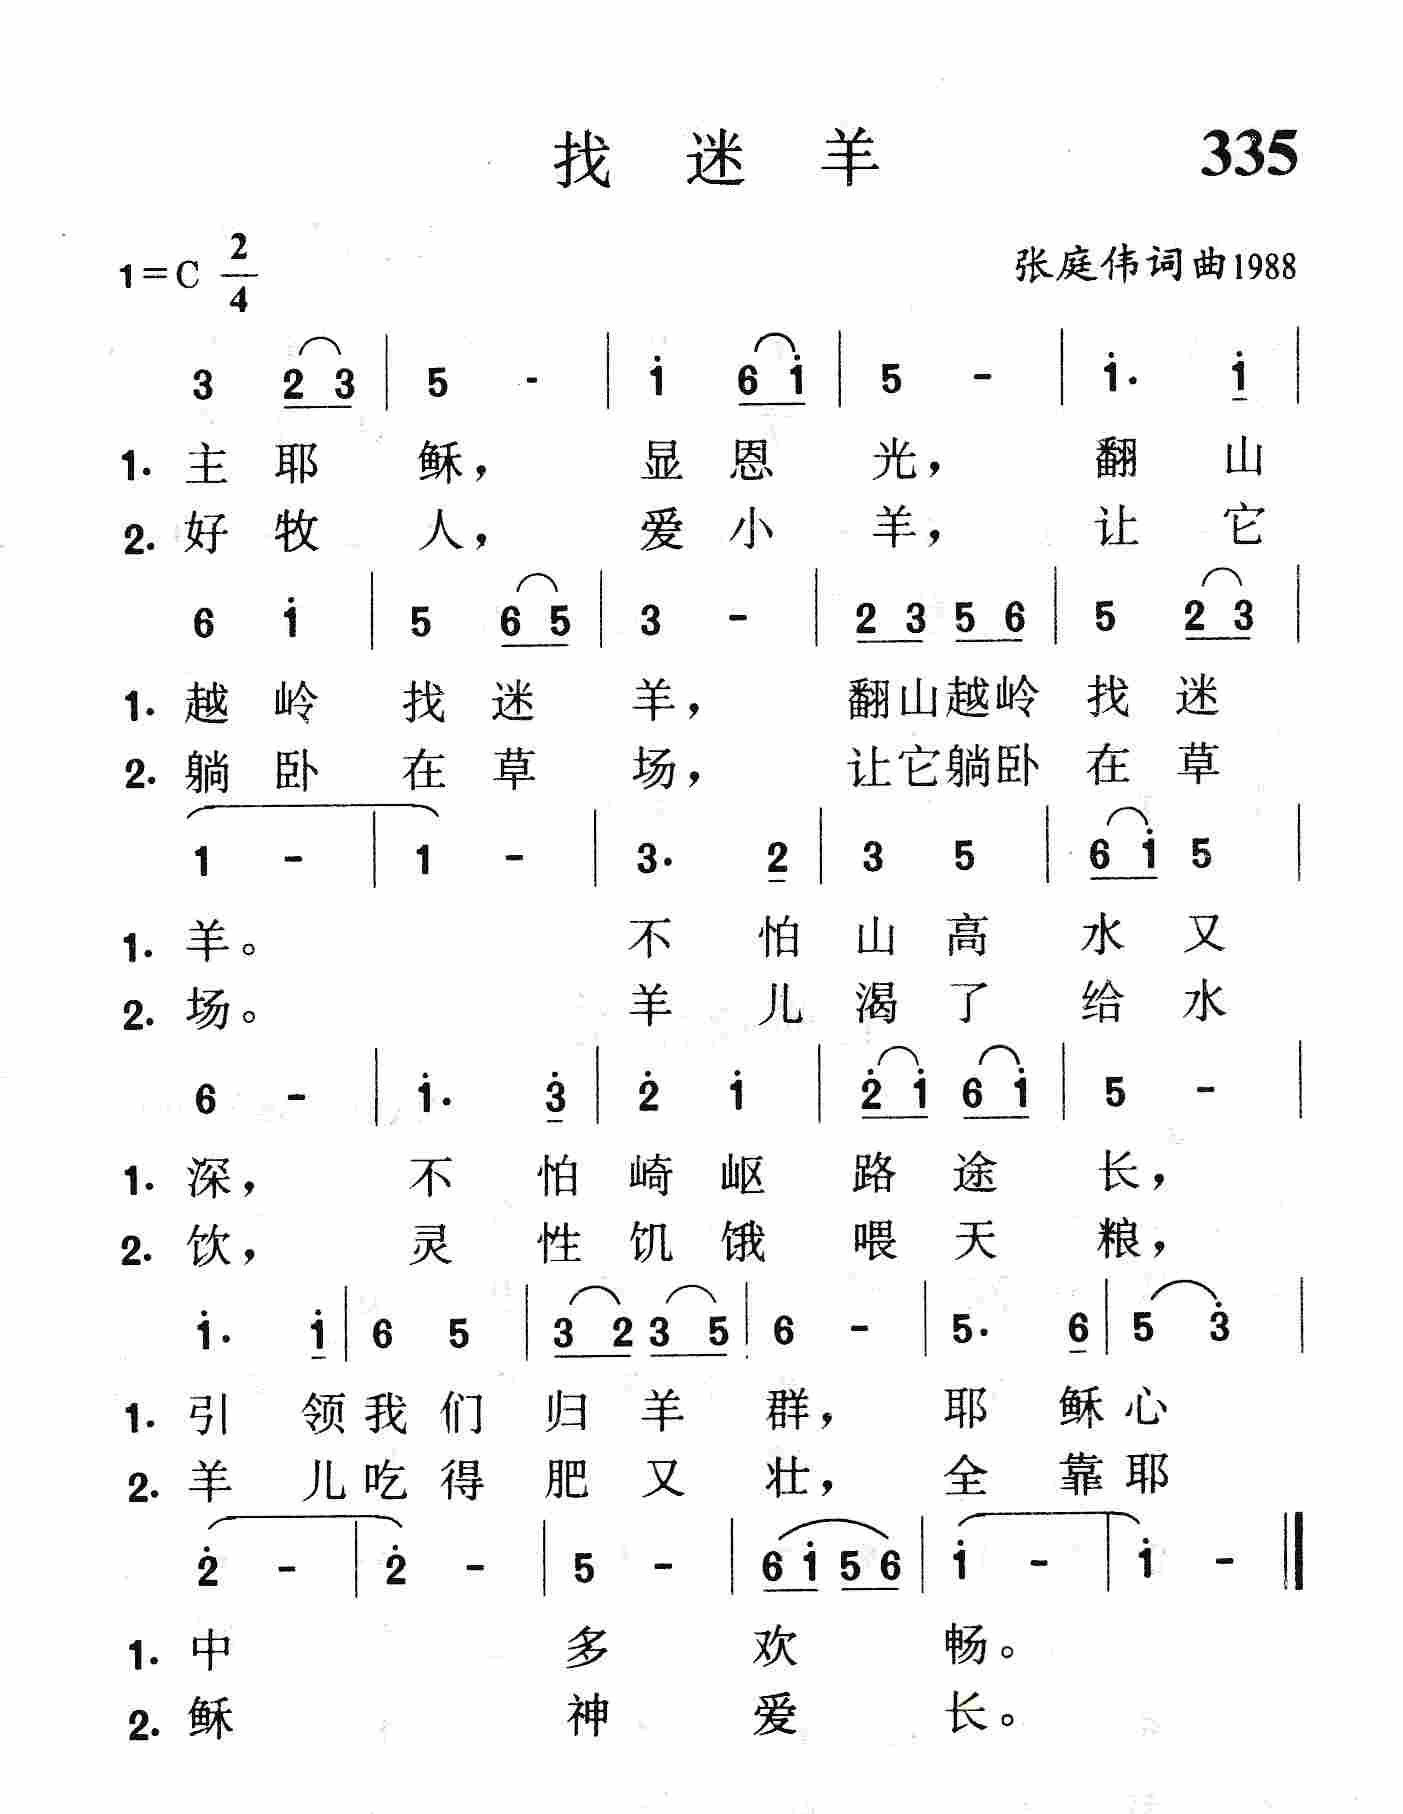 找迷羊 335
1=C 2/4 张庭伟词曲1988
3 2 3 | 5 - | 1̇ 6 1̇ | 5 - | 1̇. 1̇ |
1. 主耶稣，显恩光，翻山
2. 好牧人，爱小羊，让它
6 1̇ | 5 6 5 | 3 - | 2 3 5 6 | 5 2 3 |
1. 越岭找迷羊，翻山越岭找迷
2. 躺卧在草场，让它躺卧在草
1 - | 1 - | 3. 2 | 3 5 | 6 1̇ 5
1. 羊。不怕山高水又
2. 场。羊儿渴了给水
6 - | 1̇. 3̇ | 2̇ 1̇ | 2̇ 1̇ 6 1̇ | 5 - |
1. 深，不怕崎岖路途长，
2. 饮，灵性饥饿喂天粮，
1̇. 1̇ | 6 5 | 3 2 3 5 | 6 - | 5. 6 | 5 3̇ |
1. 引领我们归羊群，耶稣心
2. 羊儿吃得肥又壮，全靠耶
2̇ - | 2̇ - | 5 - | 6 1̇ 5 6 | 1̇ - | 1̇ - ‖
1. 中多欢畅。
2. 稣神爱长。